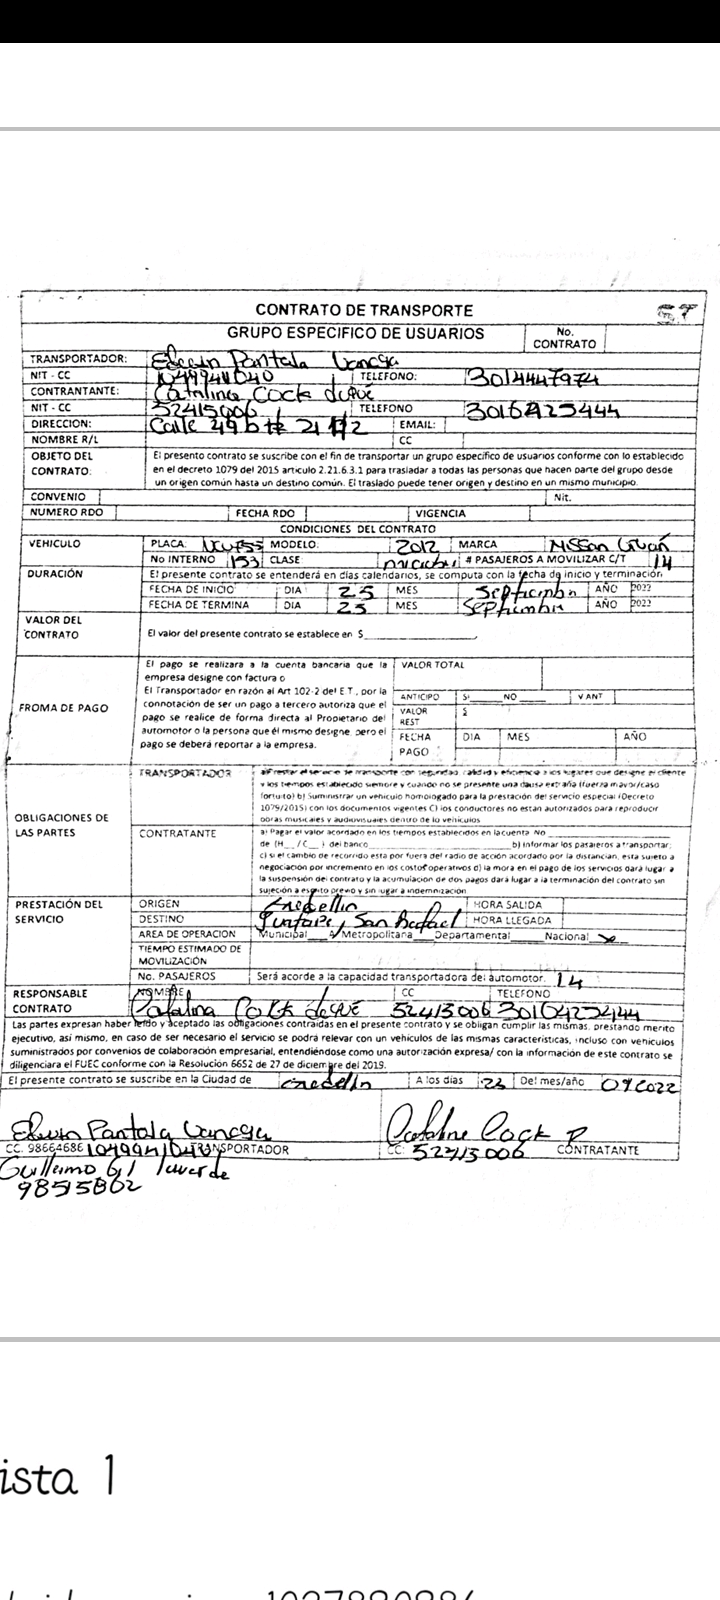 CONTRATO DE TRANSPORTE
GRUPO ESPECIFICO DE USUARIOS No. CONTRATO
TRANSPORTADOR: Edwin Pantoja Vanega
NIT - CC TELEFONO: 3014447974
CONTRANTANTE: Catalina Cock duque
NIT - CC 52415006 TELEFONO
DIRECCION: Calle 49 b # 21 EMAIL:
NOMBRE R/L CC
OBJETO DEL CONTRATO: El presento contrato se suscribe con el fin de transportar un grupo específico de usuarios conforme con lo establecido
en el decreto 1079 del 2015 articulo 2.21.6.3.1 para trasladar a todas las personas que hacen parte del grupo desde
un origen común hasta un destino común. El traslado puede tener origen y destino en un mismo municipio.
CONVENIO Nit.
NUMERO RDO FECHA RDO VIGENCIA
CONDICIONES DEL CONTRATO
VEHICULO PLACA: MODELO: 2012 MARCA Nissan
No INTERNO 153 CLASE # PASAJEROS A MOVILIZAR C/T 14
DURACIÓN El presente contrato se entenderá en días calendarios, se computa con la fecha de inicio y terminación
FECHA DE INICIO DIA 25 MES Septiembre AÑO 2022
FECHA DE TERMINA DIA 25 MES Septiembre AÑO 2022
VALOR DEL CONTRATO El valor del presente contrato se establece en $
FROMA DE PAGO
El pago se realizara a la cuenta bancaria que la
empresa designe con factura o
El Transportador en razón al Art 102-2 del E.T., por la
connotación de ser un pago a tercero autoriza que el
pago se realice de forma directa al Propietario del
automotor o la persona que él mismo designe, pero el
pago se deberá reportar a la empresa.
VALOR TOTAL
ANTICIPO SI NO V ANT
VALOR REST $
FECHA PAGO DIA MES AÑO
OBLIGACIONES DE LAS PARTES
TRANSPORTADOR a)Prestar el servicio de transporte con seguridad, calidad y eficiencia a los lugares que designe el cliente
y los tiempos establecido siempre y cuando no se presente una causa extraña (fuerza mayor/caso
fortuito) b) Suministrar un vehículo homologado para la prestación del servicio especial (Decreto
1079/2015) con los documentos vigentes C) los conductores no están autorizados para reproducir
obras musicales y audiovisuales dentro de lo vehículos
CONTRATANTE a) Pagar el valor acordado en los tiempos establecidos en la cuenta No
de (H__/C__) del banco b) Informar los pasajeros a transportar;
c) si el cambio de recorrido esta por fuera del radio de acción acordado por la distancian, esta sujeto a
negociación por incremento en los costos operativos d) la mora en el pago de los servicios dará lugar a
la suspensión del contrato y la acumulación de dos pagos dará lugar a la terminación del contrato sin
sujeción a escrito previo y sin lugar a indemnización
PRESTACIÓN DEL SERVICIO
ORIGEN Medellin HORA SALIDA
DESTINO San Rafael HORA LLEGADA
AREA DE OPERACION Municipal A/Metropolitana Departamental Nacional X
TIEMPO ESTIMADO DE MOVILIZACIÓN
No. PASAJEROS Será acorde a la capacidad transportadora del automotor. 14
RESPONSABLE CONTRATO NOMBRE CC TELEFONO
Catalina Cock duque 52415006
Las partes expresan haber leído y aceptado las obligaciones contraídas en el presente contrato y se obligan cumplir las mismas, prestando merito
ejecutivo, así mismo, en caso de ser necesario el servicio se podrá relevar con un vehículos de las mismas características, incluso con vehículos
suministrados por convenios de colaboración empresarial, entendiéndose como una autorización expresa/ con la información de este contrato se
diligenciara el FUEC conforme con la Resolución 6652 de 27 de diciembre del 2019.
El presente contrato se suscribe en la Ciudad de Medellin A los días 23 Del mes/año 09 2022
Edwin Pantoja Vanega Catalina Cock
CC. 98664686 TRANSPORTADOR CC: 52415006 CONTRATANTE
Guillermo Gil
98515802
ista 1